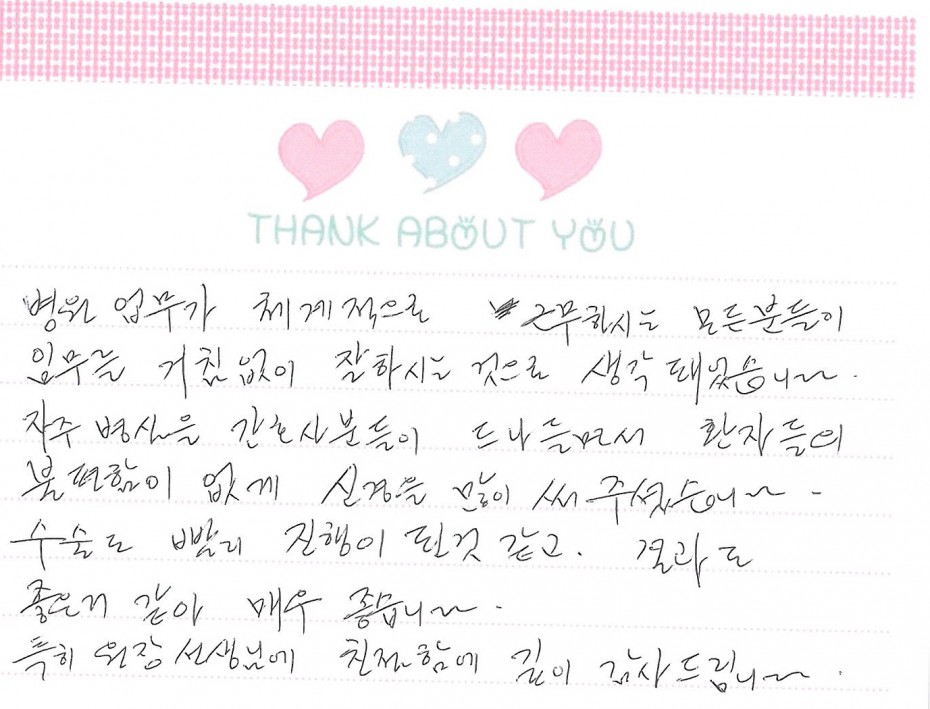 THANK ABOUT YOU
병원 업무가 체계적으로 근무하시는 모든분들이
임무를 거침없이 잘하시는 것으로 생각 돼었습니다.
자주 병상을 간호사분들이 드나들면서 환자들의
불편함이 없게 신경을 많이 써 주셨습니다.
수술도 빨리 진행이 된것 같고. 결과도
좋은거 같아 매우 좋습니다.
특히 원장선생님에 친절함에 깊이 감사드립니다.